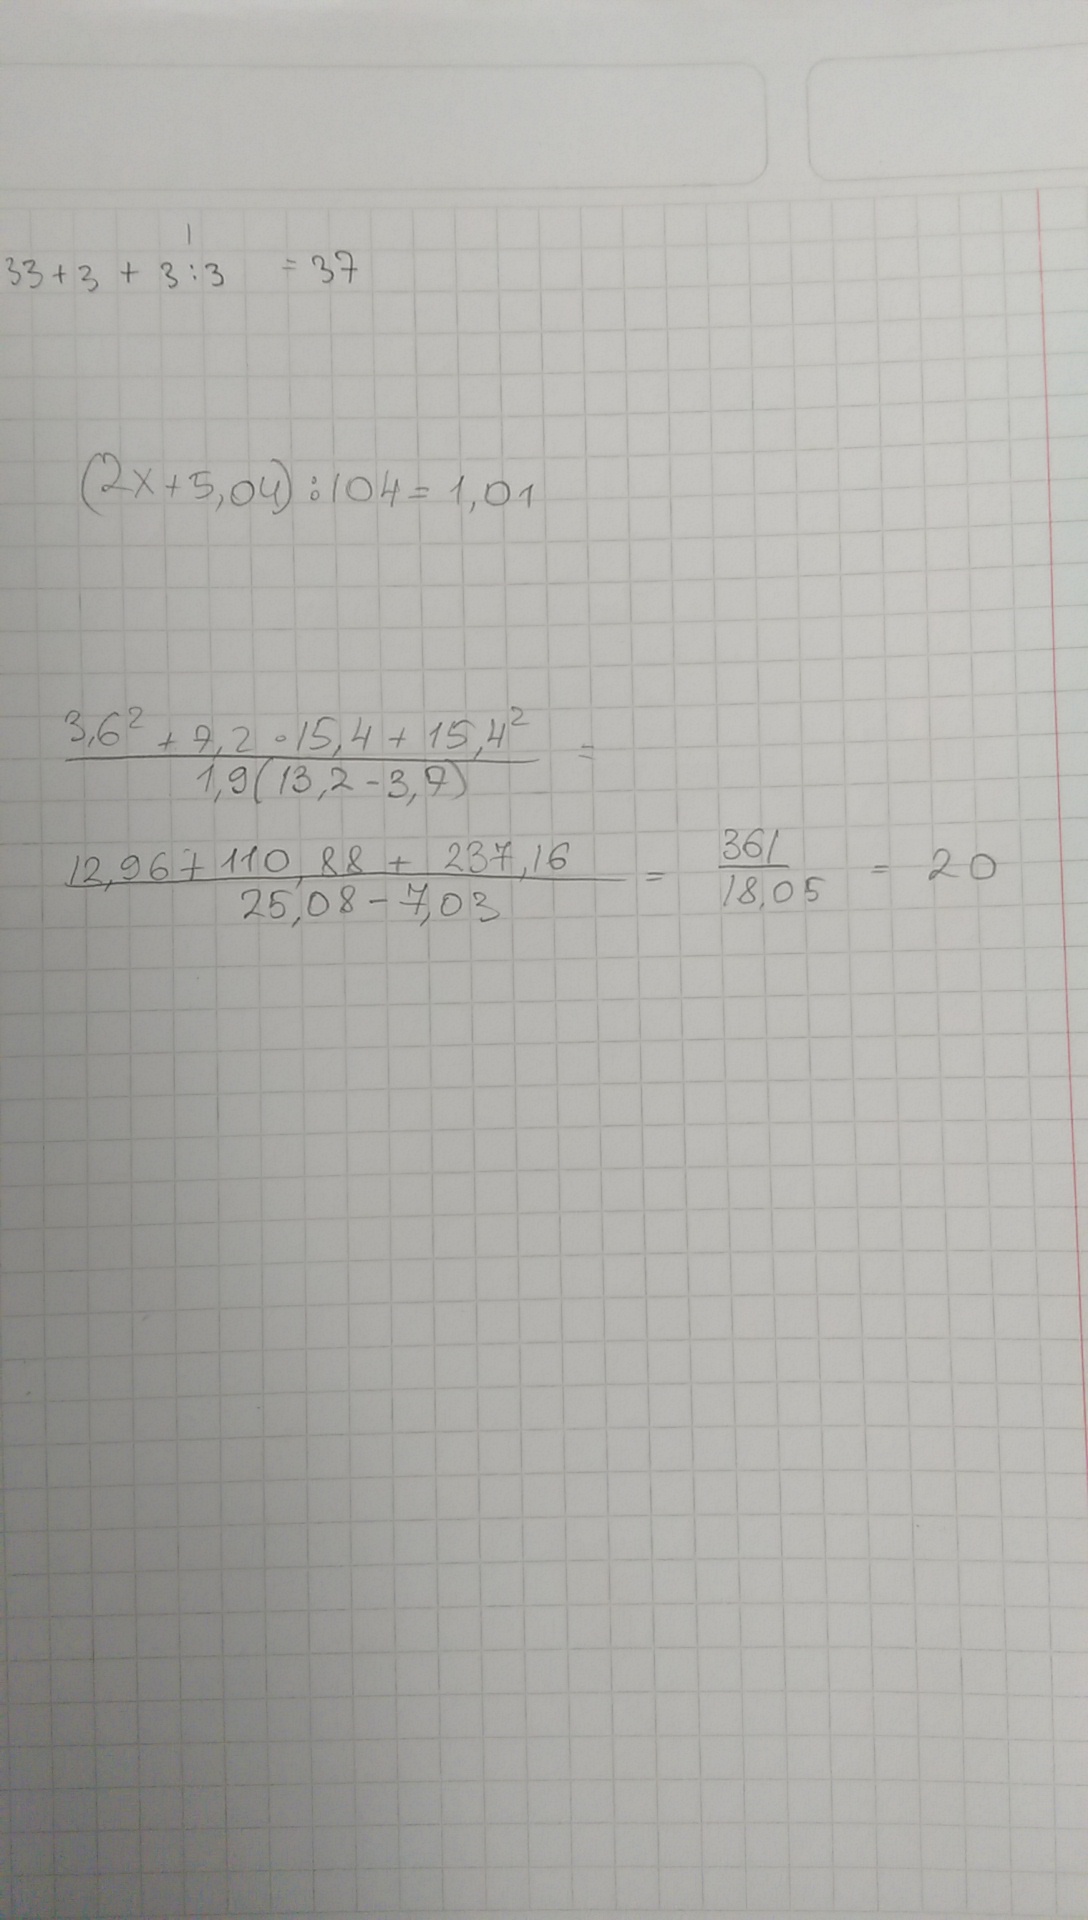 1
33+3 + 3:3 = 37
(2x+5,04):104=1,01
3,6² + 7,2 · 15,4 + 15,4² =
1,9(13,2-3,7)
12,96+110,88 + 237,16 = 361 = 20
25,08-7,03 18,05